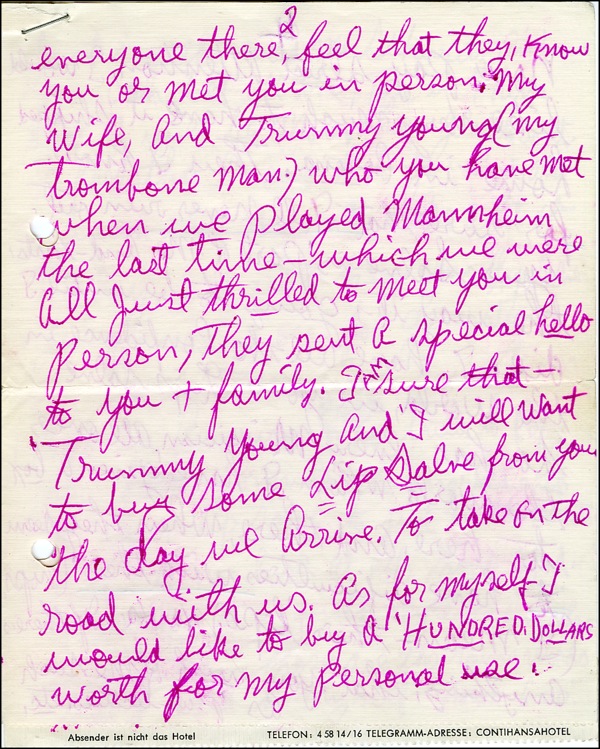 2
everyone there, feel that they, know
you or met you in person. My
Wife, And Trummy young (my
trombone man.) who you have met
when we played Mannheim
the last time – which we were
All Just thrilled to meet you in
person, They sent A special hello
to you + family. I'm sure that –
'Trummy Young And' I will want
to buy some Lip Salve from you
the day we Arrive. To take on the
road with us. As for myself I
would like to buy a 'HUNDRED. DOLLARS
worth for my personal use.
Absender ist nicht das Hotel TELEFON: 4 58 14/16 TELEGRAMM-ADRESSE: CONTIHANSAHOTEL